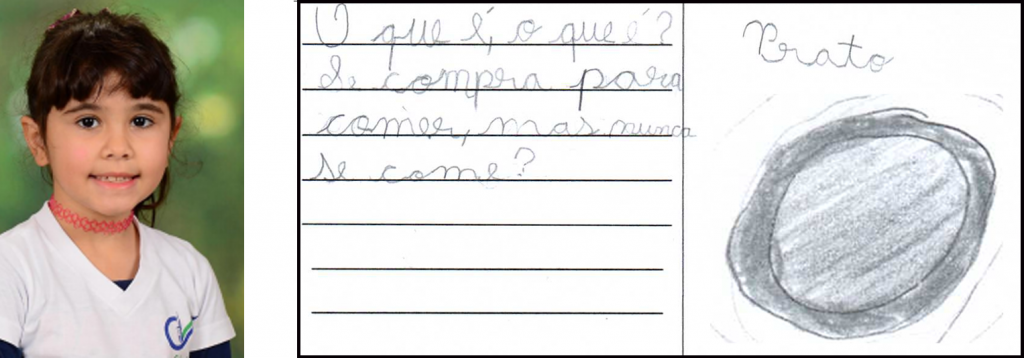 O que é, o que é?
Se compra para
comer, mas nunca
se come?
Prato